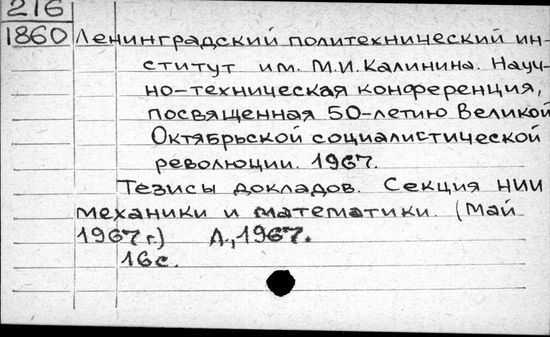 216
1860 Ленинградский политехнический ин-
ститут им. М.И. Калинина. Науч-
но-техническая конференция,
посвященная 50-летию Великой
Октябрьской социалистической
революции. 1967.
Тезисы докладов. Секция НИИ
механики и математики. (Май
1967 г.) Л., 1967.
16 с.